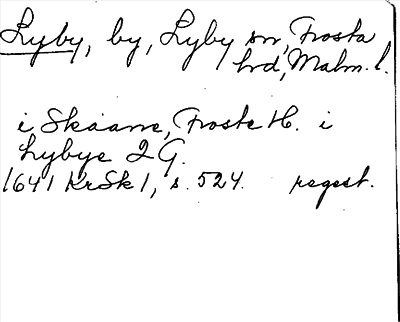 Lyby, by, Lyby sn, Frosta
hrd, Malm. l.
i Skaane, Froste H. i
Lybye 2 G.
1641 KrSk 1, s. 524. regest.